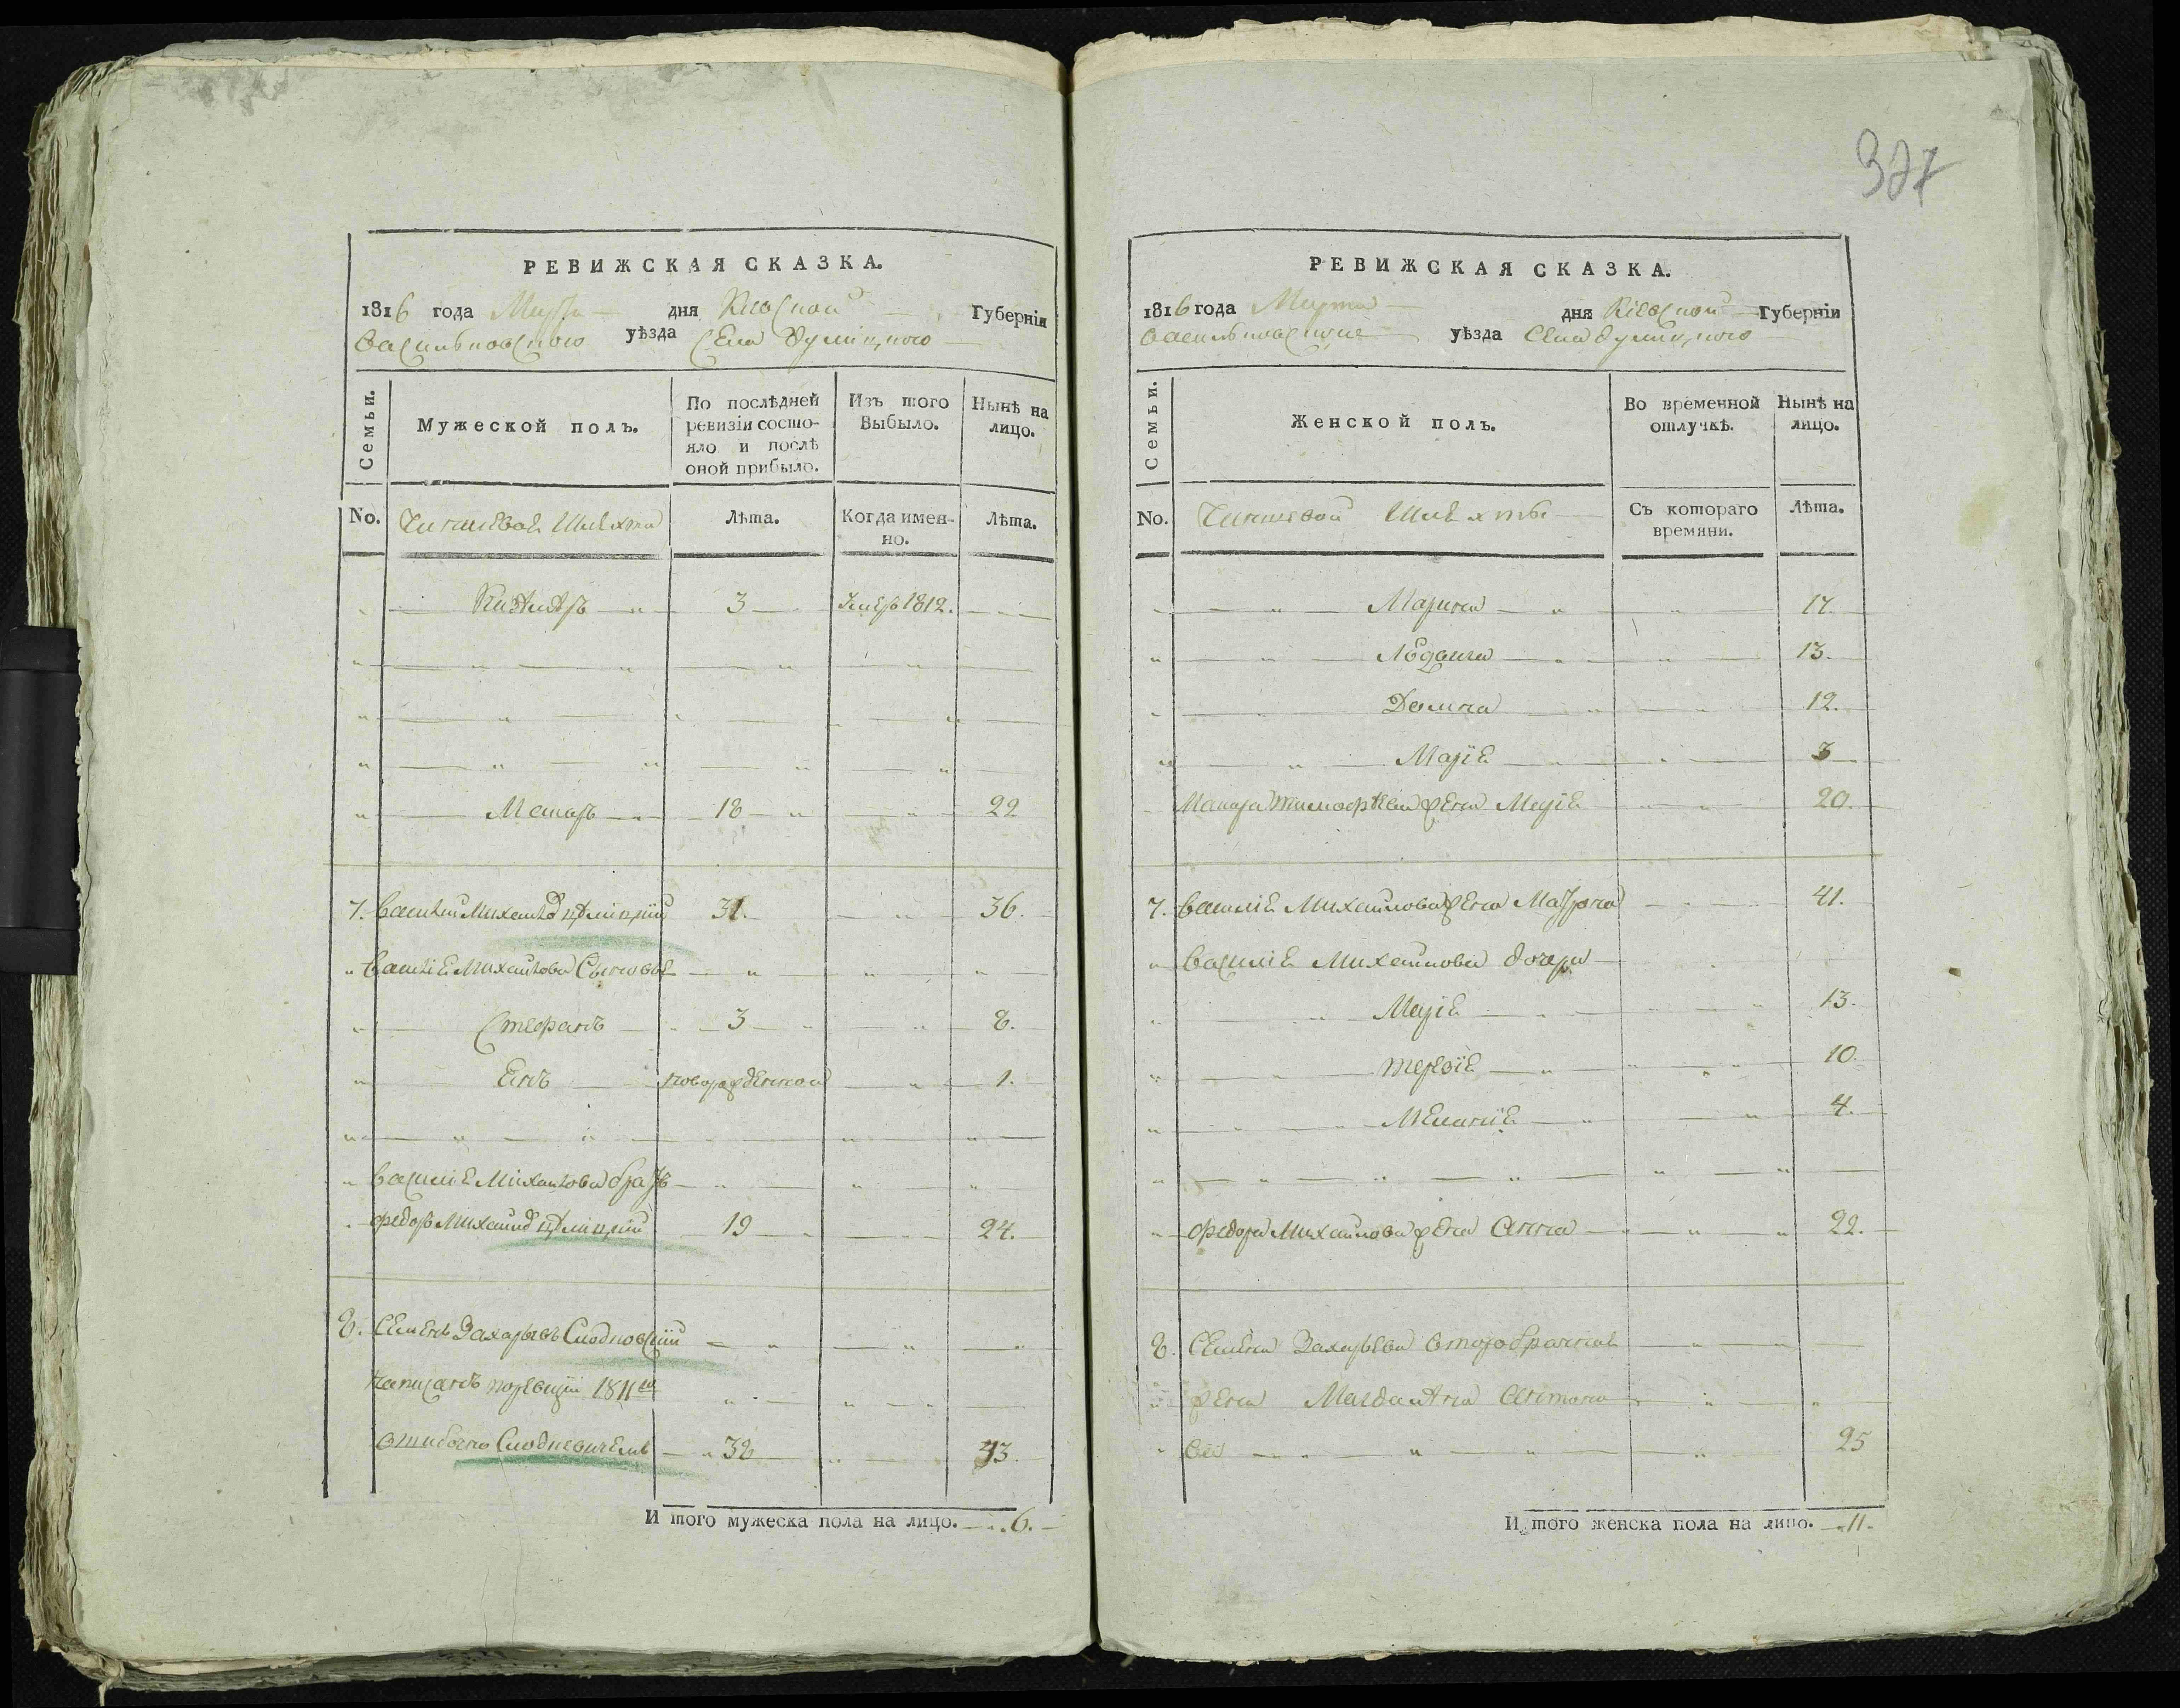 327
РЕВИЖСКАЯ СКАЗКА.
1816 года Марта дня Кіевской Губерніи
Васильковского уѣзда Села
Семьи.
Мужеской полъ.
По послѣдней ревизіи состояло и послѣ оной прибыло.
Изъ того Выбыло.
Нынѣ на лицо.
No. Чиншевой Шляхты
Лѣта.
Когда именно.
Лѣта.
3 1812.
18 22
7. Василій Михайловъ 31. 36.
Василія Михайлова Сыновья
Стефанъ 3 8.
Янъ новорожденной 1.
Василія Михайлова братъ
Федоръ Михайловъ 19 24.
8. Семенъ Захарьевъ
написанъ по ревизіи 1811го
ошибочно 38 43.
И того мужеска пола на лицо. 6.
РЕВИЖСКАЯ СКАЗКА.
1816 года Марта дня Кіевской Губерніи
Васильковского уѣзда Села
Семьи.
Женской полъ.
Во временной отлучкѣ.
Нынѣ на лицо.
No. Чиншевой Шляхты
Съ котораго времяни.
Лѣта.
Марина 17.
13.
Домна 12.
Марія 3
Тимофѣева жена Марія 20.
7. Василія Михайлова жена Матрона 41.
Василія Михайлова дочери
Марія 13.
10.
Меланія 4.
Федора Михайлова жена Анна 22.
8. Семена Захарьева второбрачная
жена Магдалѣна Антоно
ва 25
И того женска пола на лицо. 11.